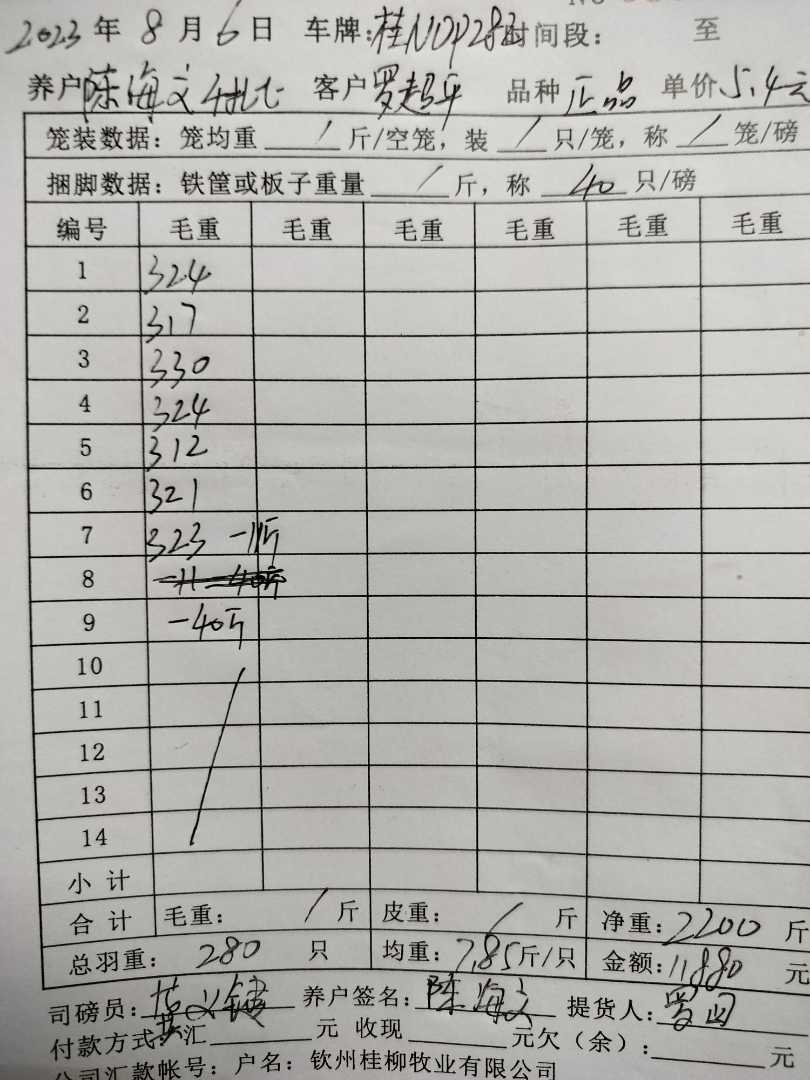 2023年8月6日 车牌:桂N0P282 时间段: 至
养户 陈海文 客户 罗超平 品种 正品 单价 5.4元
笼装数据:笼均重 / 斤/空笼,装 / 只/笼,称 / 笼/磅
捆脚数据:铁筐或板子重量 / 斤,称 40 只/磅
编号 毛重 毛重 毛重 毛重 毛重 毛重
1 324
2 317
3 330
4 324
5 312
6 321
7 323 -11斤
8
9 -40斤
10
11
12
13
14
小计
合计 毛重: / 斤 皮重: / 斤 净重:2200斤
总羽重: 280 只 均重:7.85斤/只 金额:11880元
司磅员: 养户签名:陈海文 提货人:罗
付款方式 汇 元 收现 元欠(余): 元
公司汇款帐号:户名:钦州桂柳牧业有限公司